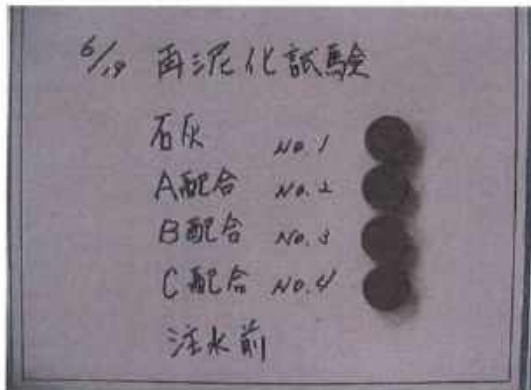 6/19 再泥化試験
石灰 No.1
A配合 No.2
B配合 No.3
C配合 No.4
注水前